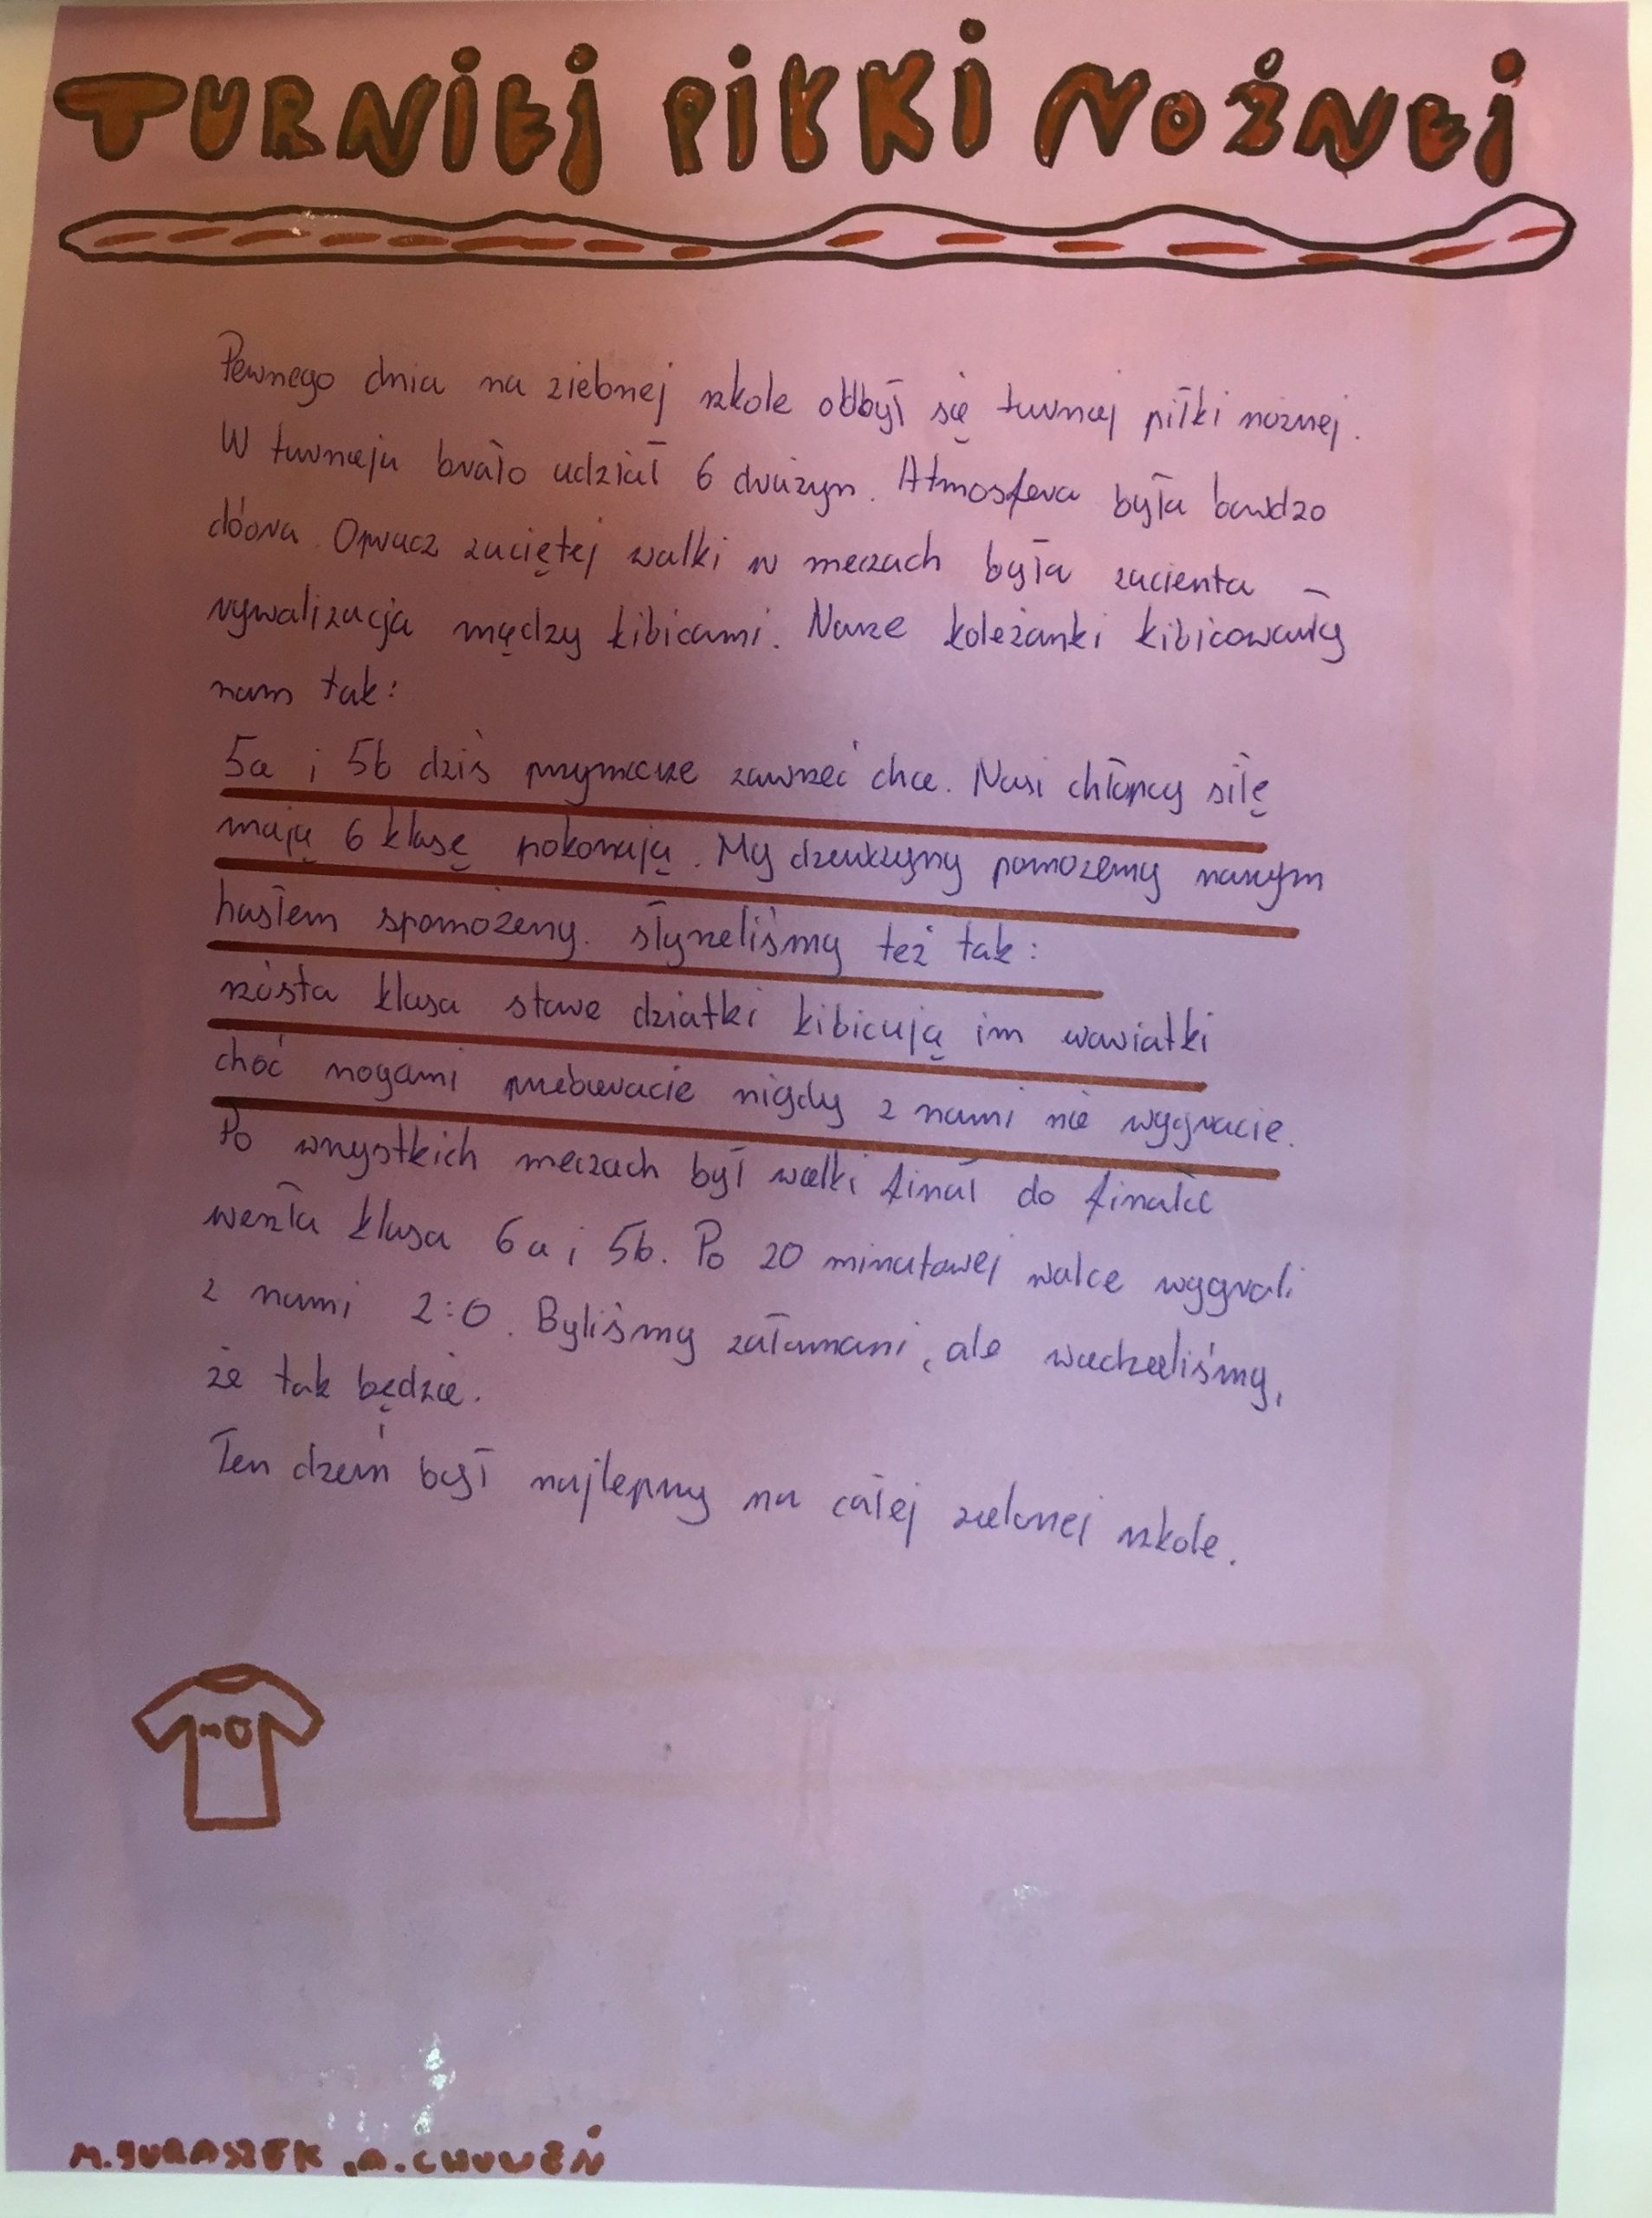 TURNIEJ PIŁKI NOŻNEJ
Pewnego dnia na zielonej szkole odbył się turniej piłki nożnej.
W turnieju brało udział 6 drużyn. Atmosfera była bardzo
dobra. Oprucz zaciętej walki w meczach była zacienta -
rywalizacja między kibicami. Nasze koleżanki kibicowały
nam tak:
5a i 5b dziś przymieże zawrzeć chce. Nasi chłopcy siłę
mają 6 klasę pokonają. My dziewczyny pomożemy naszym
hasłem spomożemy. słyszeliśmy też tak:
szósta klasa stare dziatki kibicują im wariatki
choć nogami przebieracie nigdy z nami nie wygracie.
Po wszystkich meczach był wielki finał do finału
weszła klasa 6a i 5b. Po 20 minutowej walce wygrali
z nami 2:0. Byliśmy załamani, ale wiedzieliśmy,
że tak będzie.
Ten dzień był najlepszy na całej zielonej szkole.
M. JURASZEK, A. CHUWEŃ